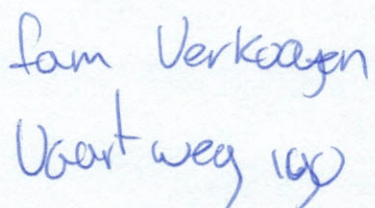 fam Verkooyen
Vaartweg 190